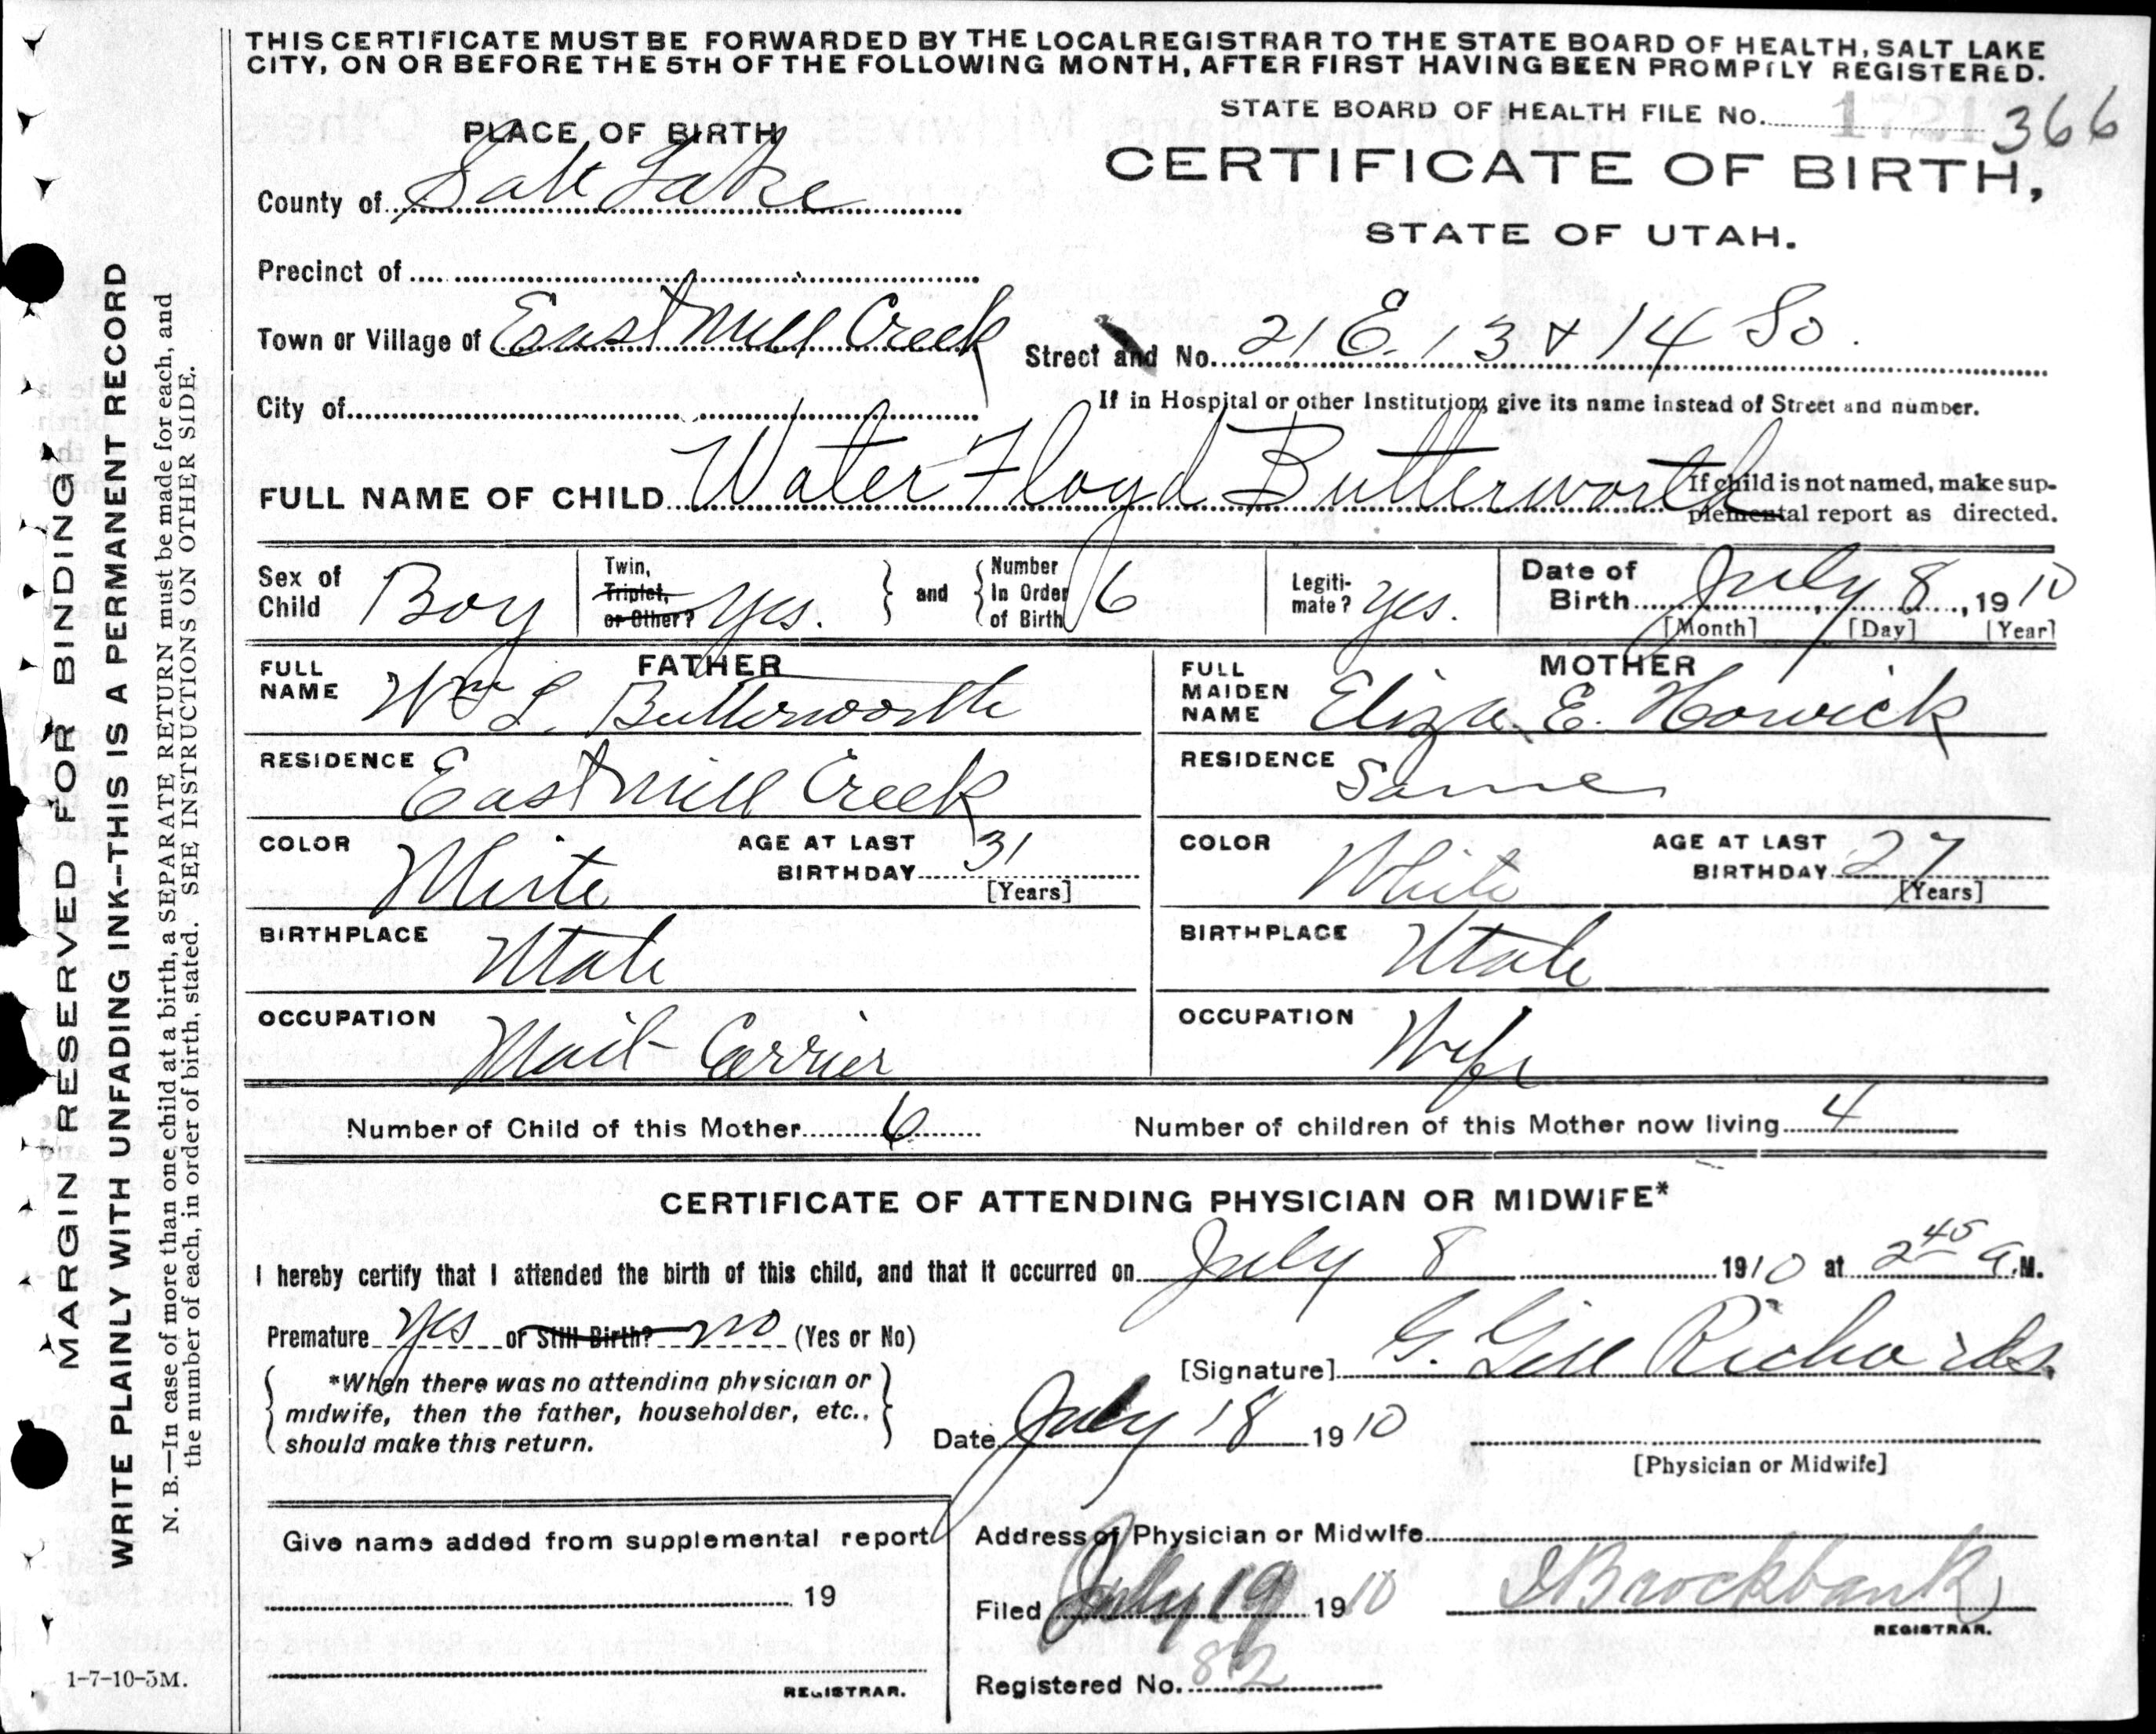 THIS CERTIFICATE MUST BE FORWARDED BY THE LOCAL REGISTRAR TO THE STATE BOARD OF HEALTH, SALT LAKE
CITY, ON OR BEFORE THE 5TH OF THE FOLLOWING MONTH, AFTER FIRST HAVING BEEN PROMPTLY REGISTERED.
STATE BOARD OF HEALTH FILE No. 366
PLACE OF BIRTH
CERTIFICATE OF BIRTH,
County of Salt Lake
STATE OF UTAH.
Precinct of
Town or Village of East Mill Creek
Street and No. 21 E. 13 & 14 So.
City of
If in Hospital or other Institution, give its name instead of Street and number.
FULL NAME OF CHILD Water Floyd Butterworth
If child is not named, make sup-
plemental report as directed.
Sex of Child Boy
Twin, Triplet, or Other? Yes.
and Number In Order of Birth 6
Legiti-mate? Yes.
Date of Birth July 8, 1910
[Month] [Day] [Year]
FATHER
FULL NAME Wm L. Butterworth
RESIDENCE East Mill Creek
COLOR White AGE AT LAST BIRTHDAY 31
[Years]
BIRTHPLACE Utah
OCCUPATION Mail Carrier
MOTHER
FULL MAIDEN NAME Eliza E. Howick
RESIDENCE Same
COLOR White AGE AT LAST BIRTHDAY 27
[Years]
BIRTHPLACE Utah
OCCUPATION Wife
Number of Child of this Mother 6 Number of children of this Mother now living 4
CERTIFICATE OF ATTENDING PHYSICIAN OR MIDWIFE*
I hereby certify that I attended the birth of this child, and that it occurred on July 8 1910 at 2 45 a.M.
Premature Yes or Still Birth? no (Yes or No)
[Signature] G. Gill Richards.
*When there was no attending physician or
midwife, then the father, householder, etc.,
should make this return.
Date July 18 1910
[Physician or Midwife]
Give name added from supplemental report
19
REGISTRAR.
Address of Physician or Midwife
Filed July 19 1910 Brockbank
REGISTRAR.
Registered No. 82
1-7-10-5M.
MARGIN RESERVED FOR BINDING
WRITE PLAINLY WITH UNFADING INK--THIS IS A PERMANENT RECORD
N. B.—In case of more than one child at a birth, a SEPARATE RETURN must be made for each, and
the number of each, in order of birth, stated. SEE INSTRUCTIONS ON OTHER SIDE.